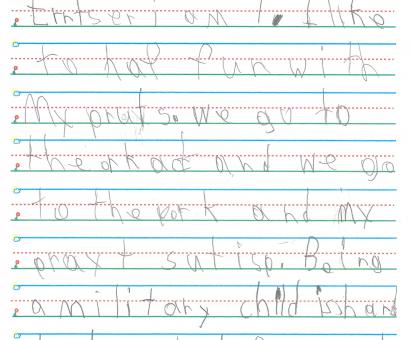 I like
to haf fun with
My prets. we go to
the arkad and we go
to the park and My
pray t sat isp. Being
a military child is har